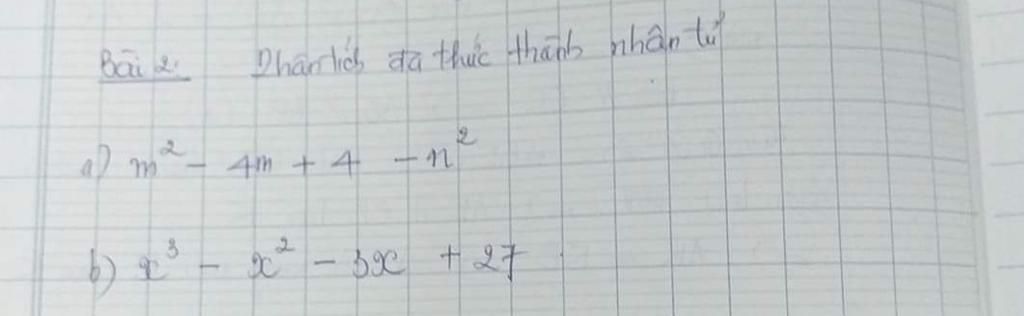 Bài 2: Phân tích đa thức thành nhân tử
a) m² - 4m + 4 - n²
b) x³ - x² - 3x + 27